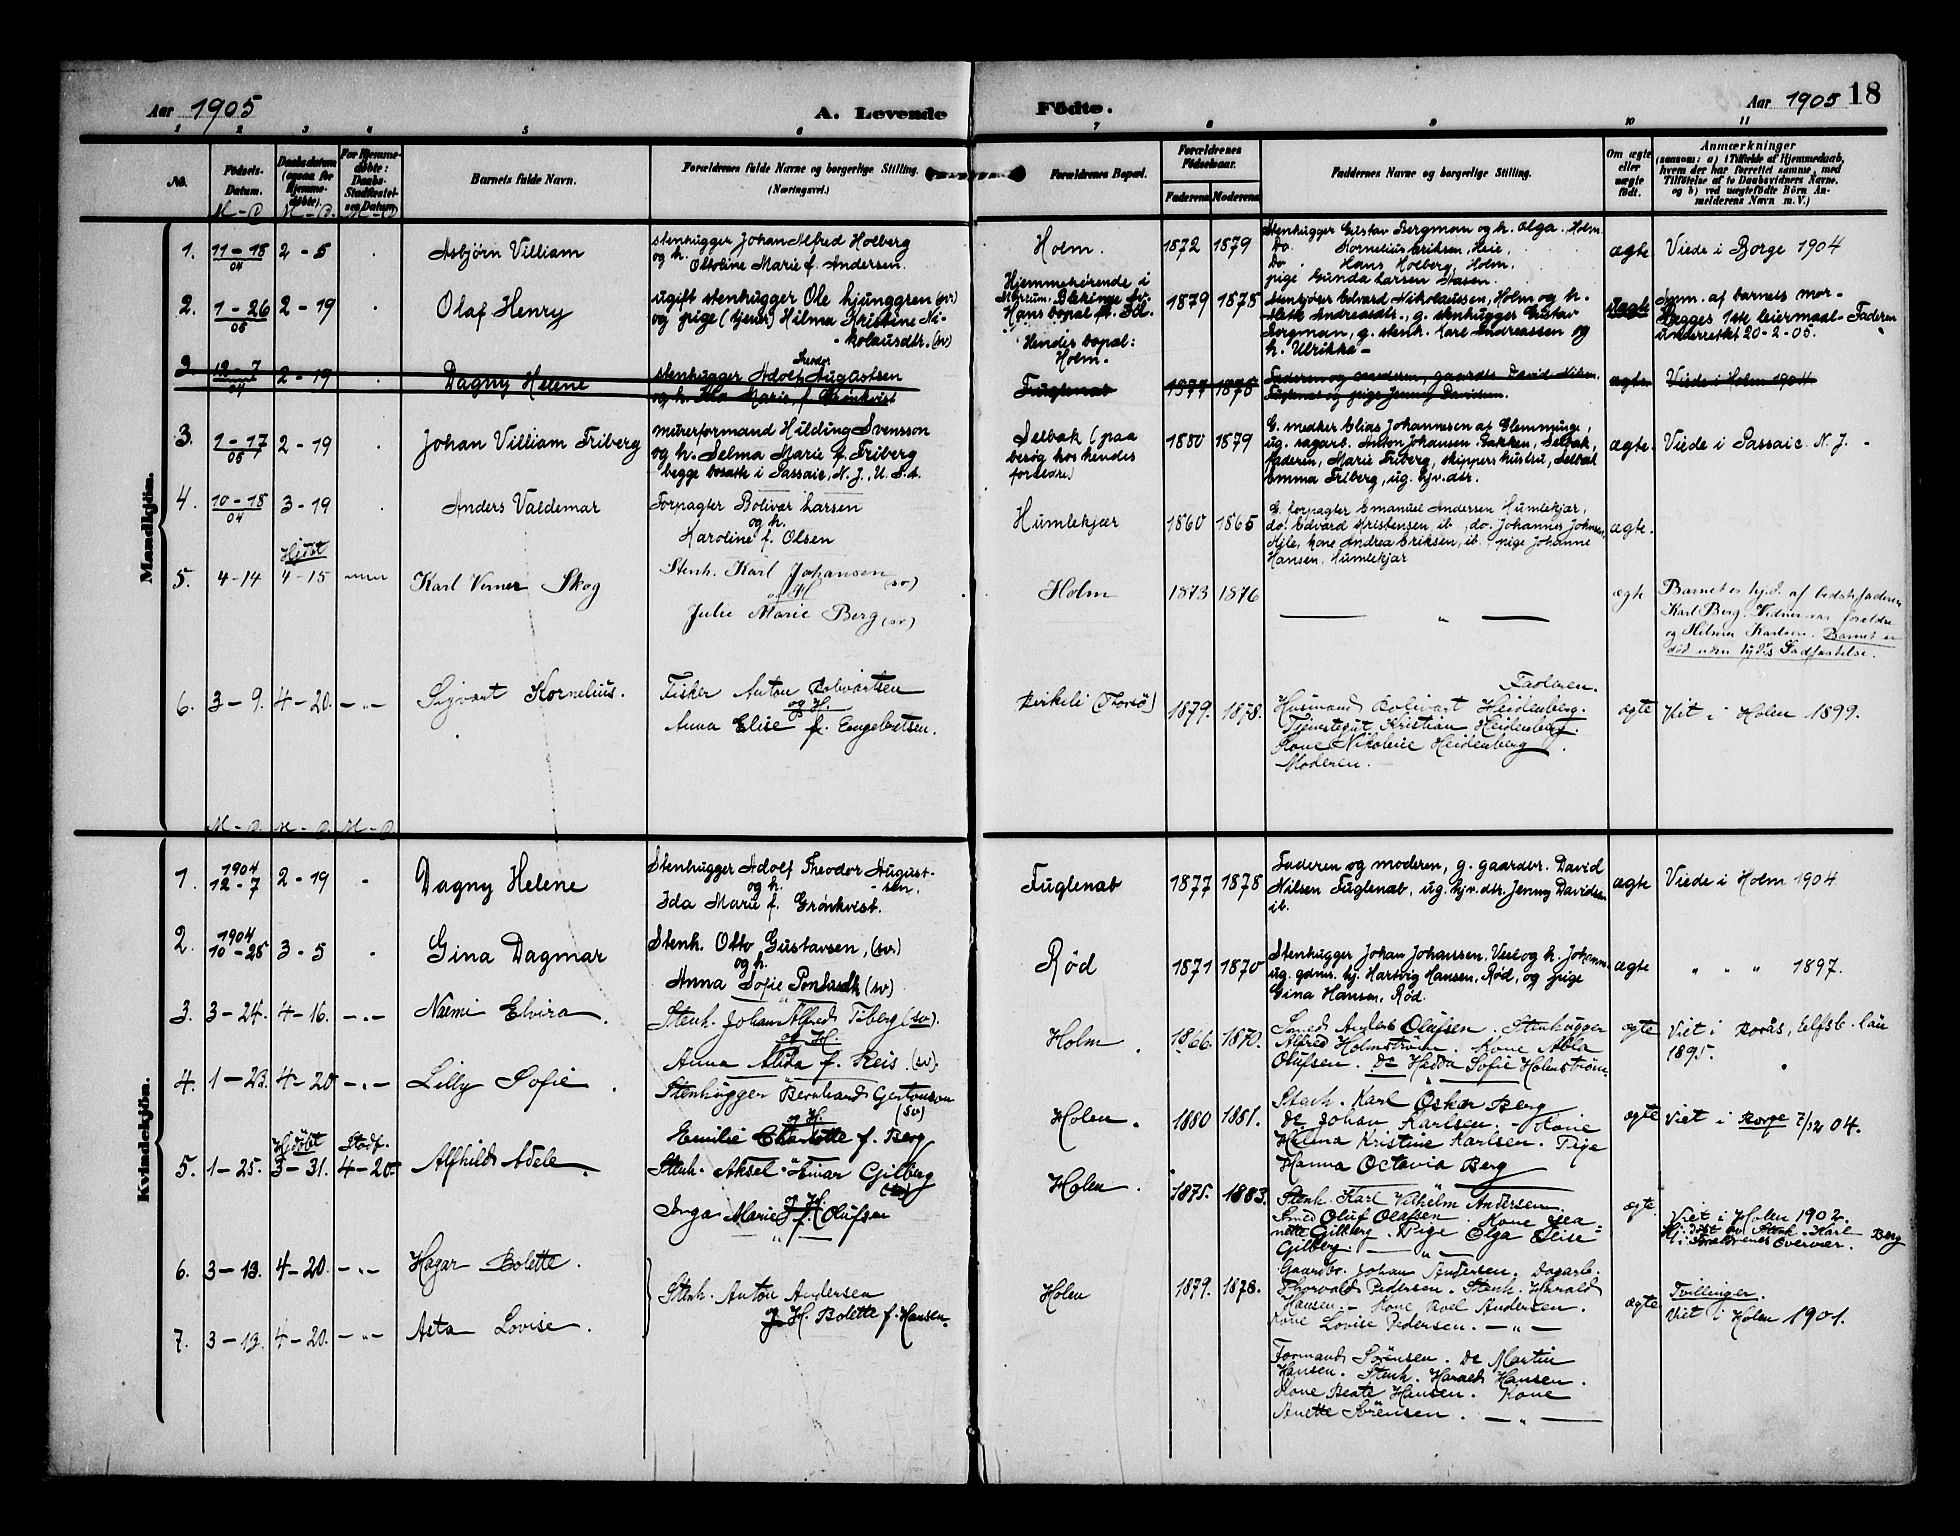 Aar 1905
A. Levende Födte.
Aar 1905 18
1 2 3 4 5 6 7 8 9 10 11
No.
Födsels-
Datum.
Daabsdatum
(ogsaa for
Hjemme-
döbte).
For Hjemme-
döbte:
Daabs-
Stadfæstel-
sen Datum.
Barnets fulde Navn.
Forældrenes fulde Navne og borgerlige Stilling.
(Næringsvei.)
Forældrenes Bopæl.
Forældrenes
Födselsaar.
Faderens Moderens
Faddernes Navne og borgerlige Stilling.
Om ægte
eller
uægte
født.
Anmærkninger
(saasom: a) i Tilfælde af Hjemmedaab,
hvem der har forrettet samme, med
Tilföielse af to Daabsvidners Navne,
og b) ved uægtefödte Börn An-
melderens Navn m. V.)
M - D M - D. M - D
Mandkjön.
1. 11-18/04 2-5 Asbjörn Villiam
stenhugger Johan Alfred Holberg
og h.
Ottoline Marie f. Andersen.
Holm. 1872 1879
Stenhugger Gustav Bergman og h. Olga. Holm.
Do. Kornelius Eriksen, Heie,
Do. Hans Holberg, Holm,
pige Gunda Larsen
ægte Viede i Borge 1904
2. 1-26/05 2-19 Olaf Henry
ugift stenhugger Ole Ljunggren (sv.)
og pige (tjener) Hilma Kristine Ni-
kolausdtr. (sv)
Hjemmehörende i
Blekinge Sv.
Hans bopæl
Hendes bopæl:
Holm.
1879 1878
Edvard Nikolaussen, Holm og h.
Andreasdtr., g. stenhugger Gustav
Bergman, g. stenh. Karl Andreassen og
h. Ulrikka -
uægte
Anm. af barnets mor -
Begges 1ste leiermaal - Faderen
underrettet 20-2-05.
3. 12-7/04 2-19 Dagny Helene
stenhugger Adolf Theodor Augustsen
og h. Ida Marie f. Grönkvist
Fuglenab 1877 1878
Faderen og moderen, gaardbr. David Nilsen,
Fuglenab og pige Jenny Davidsen.
ægte Viede i Holm 1904
3. 1-17/05 2-19 Johan Villiam Friberg
murerformand Hilding Svensson
og h. Selma Marie f. Friberg
begge bosatte i Passaic, N. J., U. S. A.
Selbak (paa
besög hos hendes
forældre)
1880 1879
G. Elias Johannesen af Glemminge,
ug. sagarb. Anton Johansen Bakken, Selbak,
Faderen, Marie Friberg, skippers hustru, Selbak
Emma Friberg, ug. hjv. dtr.
ægte. Viede i Passaic N. J. -
4. 10-18/04 3-19 Anders Valdemar
Forpagter Bolivar Larsen
og h.
Karoline f. Olsen
Humlekjær 1860 1865
G. forpagter Emanuel Andersen Humlekjær,
do. Edvard Kristensen ib., do. Johannes Johnsen,
kone Andrea Eriksen, ib. pige Johanne
Hansen, Humlekjær
ægte.
5. 4-14 Hjdöbt 4-15 Karl Verner Skog
Stenh. Karl Johansen (sv)
og H.
Julie Marie Berg (sv)
Holm 1873 1876
ægte
Barnet er hjd. af bedstefaderen
Karl Berg. Vidner var forældre
og Hilma Karlsen. Barnet er
död uden hjd's Stadfæstelse.
6. 3-9. 4-20. Sigvart Kornelius.
Fisker Anton Bolivartsen
og H.
Anna Elise f. Engebretsen.
Birkeli (Thorsö) 1879. 1878.
Faderen.
Husmand Bolivart Heidenberg.
Tjenestegut Kristian Heidenberg.
Kone Nikoline Heidenberg.
Moderen.
ægte Viet i Holm 1899.
M - D. M - D. M - D
Kvindekjön.
1. 1904 12-7 2-19 Dagny Helene
Stenhugger Adolf Theodor August-
og h. sen.
Ida Marie f. Grönkvist.
Fuglenab 1877 1878
Faderen og moderen, g. gaardbr. David
Nilsen Fuglenab, ug. hjv. dtr. Jenny Davidsen
ib.
ægte Viede i Holm 1904
2. 1904 10-25 3-5 Gina Dagmar
Stenh. Otto Gustavsen, (sv)
og h.
Anna Sofie (sv)
Röd 1871 1870
Stenhugger Johan Johansen, og h. Johanne
ug. gdms. hj. Hartvig Hansen, Röd, og pige
Gina Hansen, Röd.
ægte " " " 1897.
3. 3-24. 4-16. Naemi Elvira.
Stenh. Johan Alfred Tiberg (sv).
og H.
Anna Alida f. Reis. (sv).
Holm. 1866. 1870.
Smed Anders Olufsen. Stenhugger
Alfred Holmström. Kone Alba
Olufsen. Do Hadda Sofie Holmström.
ægte Viet i Borås, Elfsb. län
1895.
4. 1-23. 4-20 Lilly Sofie.
Stenhugger Bernhard Gertonson (sv)
og H.
Emilie Charlotte f. Berg
Holm. 1880 1881.
Stenh. Karl Oskar Berg
Do Johan Karlsen. Kone
Helma Kristine Karlsen. Pige
Hanna Octavia Berg
ægte Viet i Borge 7/12 04.
5. 1-25. Hjdöbt 3-31. Stadf. 4-20. Alfhild Adele
Stenh. Aksel Einar Gilberg
(sv)
og H.
Inga Marie f. Olufsen
Holm. 1875. 1883.
Stenh. Karl Vilhelm Andersen.
Smed Oluf Olafsen. Kone Jea-
nette Gilberg. Pige Olga Elise
Gilberg.
ægte.
Viet i Holm 1902.
Hjdöbt av Stenh. Karl Berg
i Forældrenes Overvær.
6. 3-13. 4-20. Hagar Bolette.
7. 3-13. 4-20. Asta Lovise.
Stenh. Anton Andersen
og H. Bolette f. Hansen.
Holm 1879. 1878.
Gaardbr. Johan Andersen. Dagarb.
Thorvald Pedersen. Stenh. Harald
Hansen. - Kone Andersen.
Kone Lovise Pedersen.
ægte
Tvillinger.
Viet i Holm 1901.
Formand Sörensen. Do Martin
Hansen. Stenh. Harald Hansen.
Kone Beate Hansen. Kone
Sörensen.